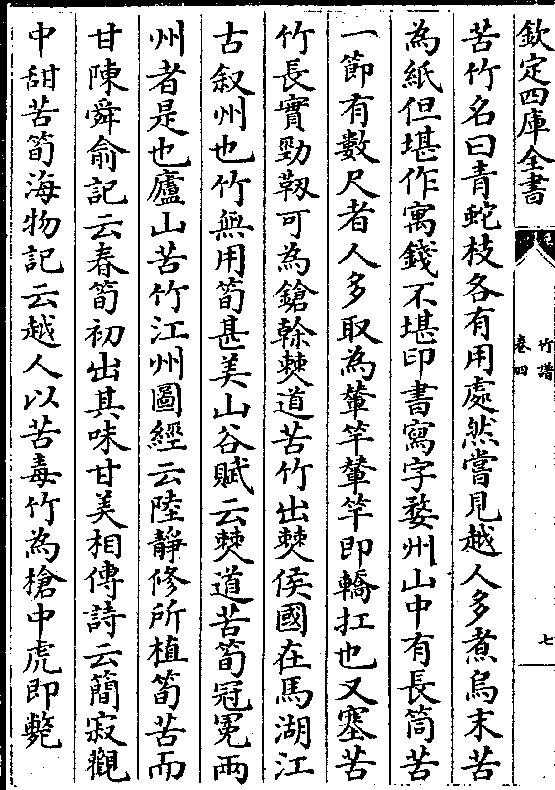 欽定四庫全書
竹譜
卷四
七
苦竹名曰青蛇枝各有用處然嘗見越人多煮烏末苦
為紙但堪作寓錢不堪印書寫字婺州山中有長筒苦
一節有數尺者人多取為輦竿輦竿即轎扛也又塞苦
竹長實勁靱可為鎗榦僰道苦竹出僰侯國在馬湖江
古叙州也竹無用筍甚美山谷賦云僰道苦筍冠冕兩
州者是也廬山苦竹江州圖經云陸靜修所植筍苦而
甘陳舜俞記云春筍初出其味甘美相傳詩云簡寂觀
中甜苦筍海物記云越人以苦毒竹為槍中虎即斃